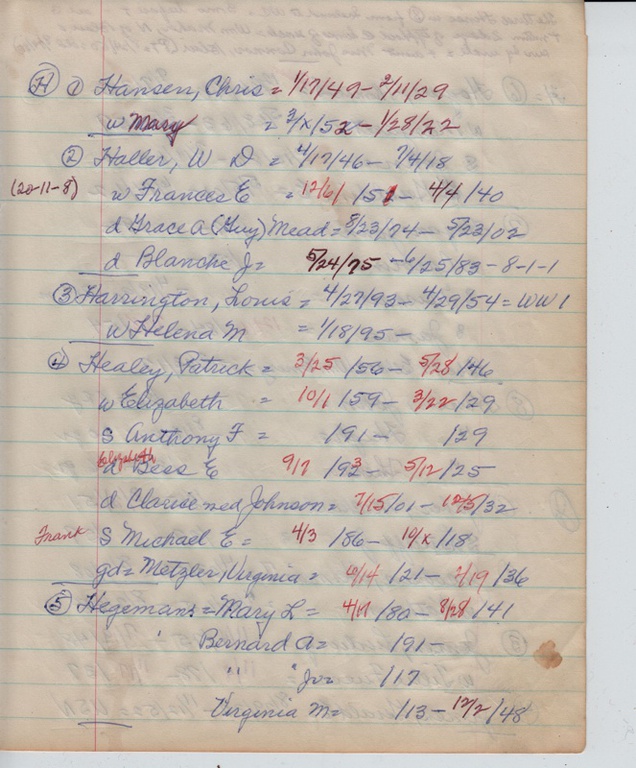 (H) ① Hansen, Chris = 1/17/49 - 2/11/29
w Mary = 3/x/52 - 1/28/22
② Haller, W D = 4/17/46 - 7/4/18
(20-11-8) w Frances E = 12/6/ /51 - 4/4/40
d Grace A (Guy) Mead = 8/23/74 - 5/23/02
d Blanche J = 5/24/75 - 6/25/83 - 8-1-1
③ Harrington, Louis = 4/27/93 - 4/29/54 = WW 1
w Helena M = 1/18/95 -
④ Healey, Patrick = 3/25 /56 - 5/28 /46
w Elizabeth = 10/1 /59 - 3/22 /29
S Anthony F = /91 - /29
Elizabeth
d Bess E 9/7 /93 - 5/12 /25
d Clarice med Johnson = 7/15/01 - /32
Frank S Michael E = 4/3 /86 - 10/x /18
gd = Metzler, Virginia = /21 - /19 /36
⑤ Hegemans = Mary L = /80 - 8/28 /41
" Bernard A = /91 -
" " Jr = /17
Virginia M = /13 - 12/2 /48